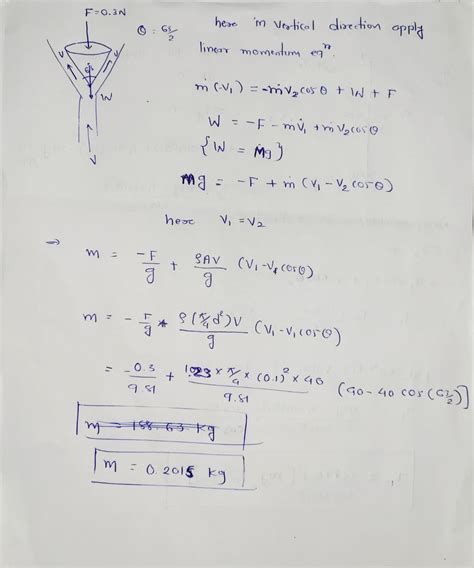 F = 0.3N
θ = 65/2
here in vertical direction apply
linear momentum eqⁿ.
ṁ(-V₁) = -ṁV₂cosθ + W + F
W = -F - ṁV₁ + ṁV₂cosθ
{W = Mg}
Mg = -F + ṁ(V₁ - V₂cosθ)
here V₁ = V₂
V V
W
V
⇒ m = -F/g + ρAV/g (V₁-V₁cosθ)
m = -F/g + ρ(π/4 d²)V/g (V₁-V₁cosθ)
= -0.3/9.81 + 1.23 × π/4 × (0.1)² × 40/9.81 (40 - 40 cos(65/2)]
m = 0.2015 kg